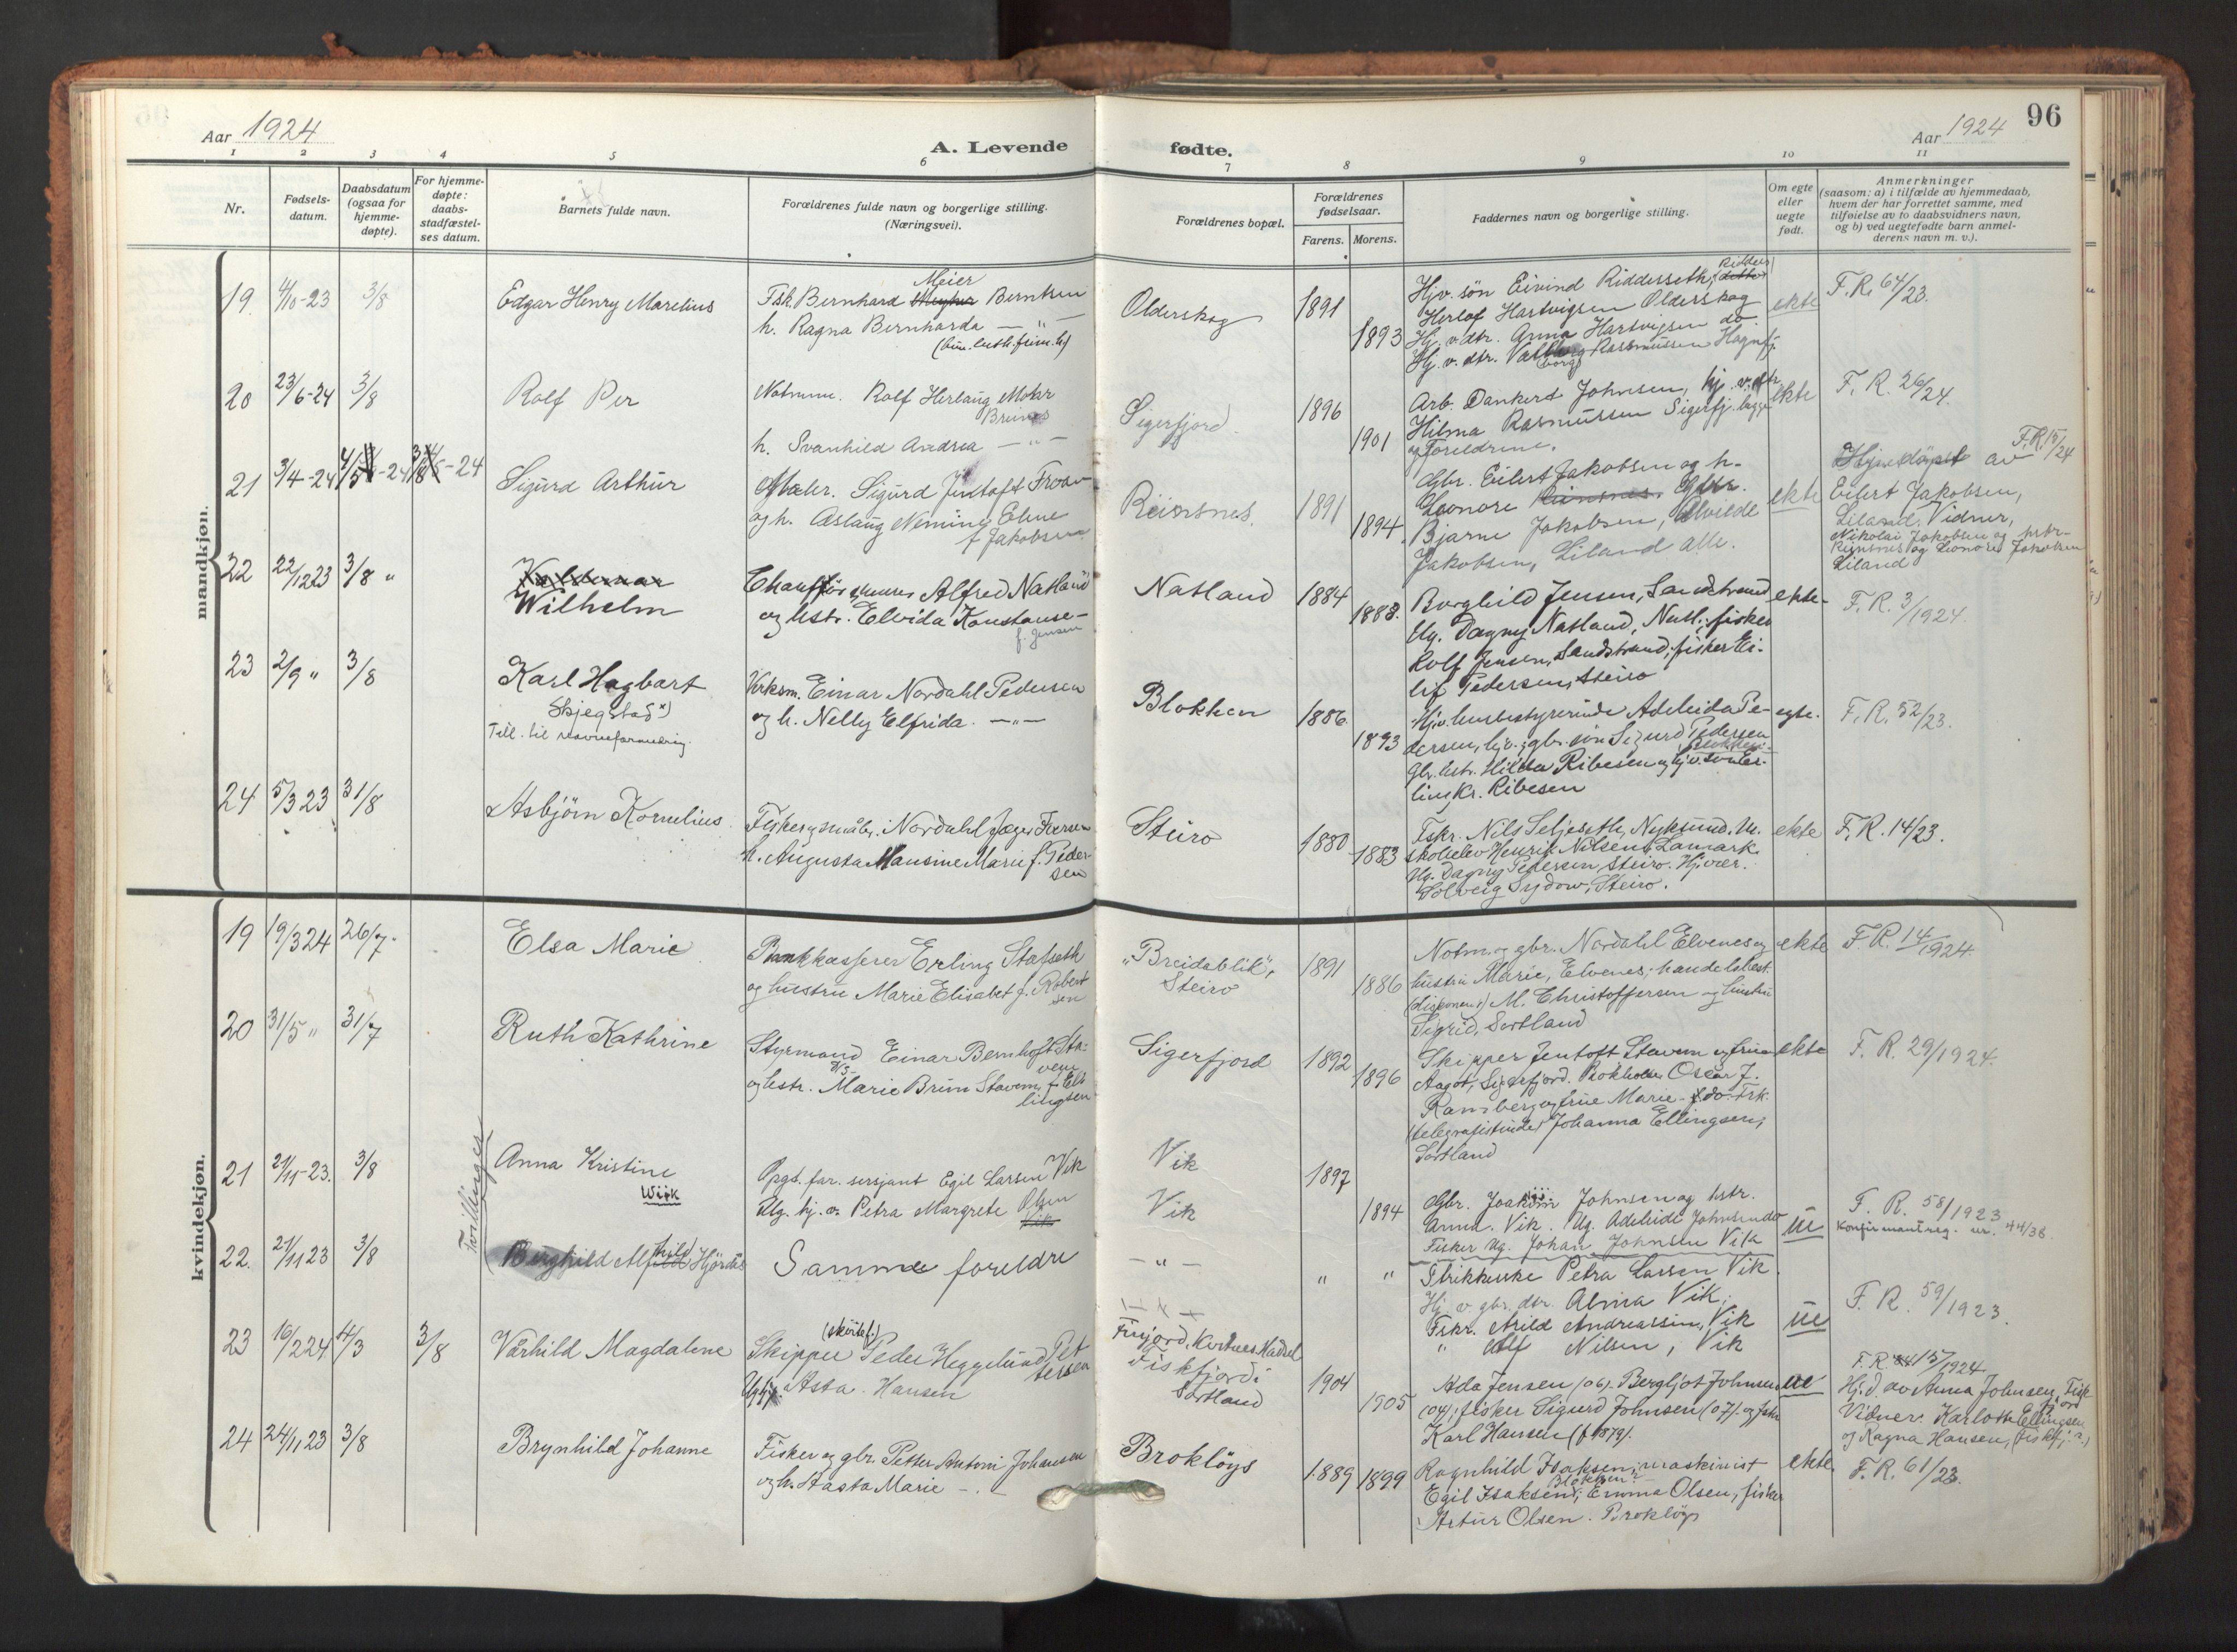 Aar 1924
A. Levende fødte.
Aar 1924
96
1 2 3 4 5 6 7 8 9 10 11
Nr.
Fødsels-
datum.
Daabsdatum
(ogsaa for
hjemme-
døpte).
For hjemme-
døpte:
daabs-
stadfæstel-
ses datum.
Barnets fulde navn.
Forældrenes fulde navn og borgerlige stilling.
(Næringsvei).
Forældrenes bopæl.
Forældrenes
fødselsaar.
Farens. Morens.
Faddernes navn og borgerlige stilling.
Om egte
eller
uegte
født.
Anmerkninger
(saasom: a) i tilfælde av hjemmedaab,
hvem der har forrettet samme, med
tilføielse av to daabsvidners navn,
og b) ved uegtefødte barn anmel-
derens navn m. v.).
mandkjøn.
19. 4/10-23 3/8
Edgar Henry Marelius
Meier
Fsk. Bernhard Berntsen
h. Ragna Bernharda — " —
Olderskog
1891
1893
Hjv. søn Eivind Ridderseth,
Herlof Hartvigsen Olderskog
Hj. v. dtr. Anna Hartvigsen do
Hj. v. dtr. Valborg Rasmussen
ekte
F. R. 64/23.
20 23/6-24 3/8
Rolf Per
Notmm. Rolf Herlaug Mohr
Bruns
h. Svanhild Andrea — " —
Sigerfjord.
1896
1901
Arb. Dankert Johnsen, hj. v. dtr.
Hilma Rasmussen Sigerfj. begge
og foreldrene.
ekte
F. R. 26/24.
21 3/4-24
Sigurd Arthur
Maler. Sigurd Jentoft Froan
og h. Aslaug Neming Eline
f. Jakobsen
Reinsnes.
1891
1894.
Gbr. Eilert Jakobsen og h.
Leonore
Bjarne Jakobsen, Alvilde
Jakobsen, Liland alle.
ekte
F.R. 15/24
Hjemdöpt av
Eilert Jakobsen,
Liland. Vidner,
Nikolai Jakobsen og hstr.
Reinsnes og Leonore Jakobsen
Liland
22 22/12 23 3/8 "
Valdemar
Wilhelm
Chaufför Alfred Natland
og hstr. Elvida Konstanse —
f. Jensen
Natland
1884
1888.
Borghild Jensen, Sandstrand
Ug. Dagny Natland, Natl.; fisker
Rolf Jensen, Sandstrand; fisker Ei-
lif Pedersen, Steiro
ekte-
F. R. 3/1924.
23 2/9 " 3/8
Karl Hagbart
Skjegstad x)
Till. til navneforandrig.
Verksm. Einar Nordahl Pedersen
og h. Nelly Elfrida. — " —
Blokken
1886
1893
Hjv. husbestyrerinde Adeleida Pe-
dersen, hjv.; gbr. søn Sigurd Pedersen
Gbr. hstr. Hilda Ribesen og hjv. søn Er-
ling Kr. Ribesen
egte.
F. R. 52/23.
24 5/3 23 31/8
Asbjörn Kornelius.
Fisker og småbr. Nordahl Jæger Iversen
h. Augusta Hansine Marie f. Peder-
sen
Steiro
1880
1883
Fskr. Nils Seljeseth, Nyksund. U.
skoleelev Henrik Nilsen, Lamark.
Ug. Dagny Pedersen, Steiro. Hjvær.
Solveig Sydow, Steiro.
ekte
F. R. 14/23.
kvindekjøn.
19 19/3 24 26/7.
Elsa Marie
Bankkasserer Erling Stafseth
og hustru Marie Elisabet f. Robert
sen
"Breidablik",
Steiro
1891
1886
Notm. og gbr. Nordahl Elvenes og
hustru Marie, Elvenes; handelsbest.
(disponent) M. Christoffersen og hustru
Sigrid, Sortland
ekte
F. R. 14/1924.
20 31/5 " 31/7
Ruth Kathrine
Styrmand Einar Bernhoft Sta-
vem
og hstr. Marie Brun Stavem, f. El-
lingsen
Sigerfjord
1892
1896
Skipper Jentoft Stavem og frue
Aagot, Sigerfjord. Bokholder Oscar J.
Ramberg og frue Marie. do. Frk.
(telegrafistinde) Johanna Ellingsen;
Sortland
ekte
F. R. 29/1924.
Tvillinger
21 21/11-23. 3/8
Anna Kristine
Wiik
Opgt. far. sersjant Egil Larsen Vik
Ug. hj. v. Petra Margrete Olsen
Vik
Vik
Vik
1897
1894
Gbr. Joakim Johnsen og hstr.
Anna. Vik. Ug. Adeleide Johnsen do
Fisker ug. Johan Johnsen Vik
ue
F. R. 58/1923
Konfirmantreg. nr. 44/38.
22. 21/11 23 3/8
Borghild Alfhild Hjördis
Samme foreldre
— " —
" "
Strikkerske Petra Larsen Vik.
Hj. v. gbr. dtr. Alma Vik;
Fskr. Arild Andreassen, Vik
" Alf Nilsen, Vik
ue
F. R. 59/1923.
23 16/2 24 14/3 3/8
Vårhild Magdalene
(skøitef.)
Skipper Peder Heggelund Pet
tersen
Asta Hansen
Fiskfjord i
Sortland
1904
1905
Ada Jensen (06). Bergljot Johnsen
(04); fisker Sigurd Johnsen (07). og fskr.
Karl Hansen (f. 1879).
ue
F. R. 15/1924
Hj.d. av Anna Johnsen, Fisk
fjord
Vidner: Karlotte Ellingsen
og Ragna Hansen,
24 24/11 23 3/8
Brynhild Johanne
Fisker og gbr. Petter Antoni Johansen
og h. Hasta Marie — . —
Brokløys
1889
1899
Ragnhild Isaksen; maskinist
Blokken
Egil Isaksen; Emma Olsen; fisker
Artur Olsen. Brokløys
ekte.
F. R. 61/23.